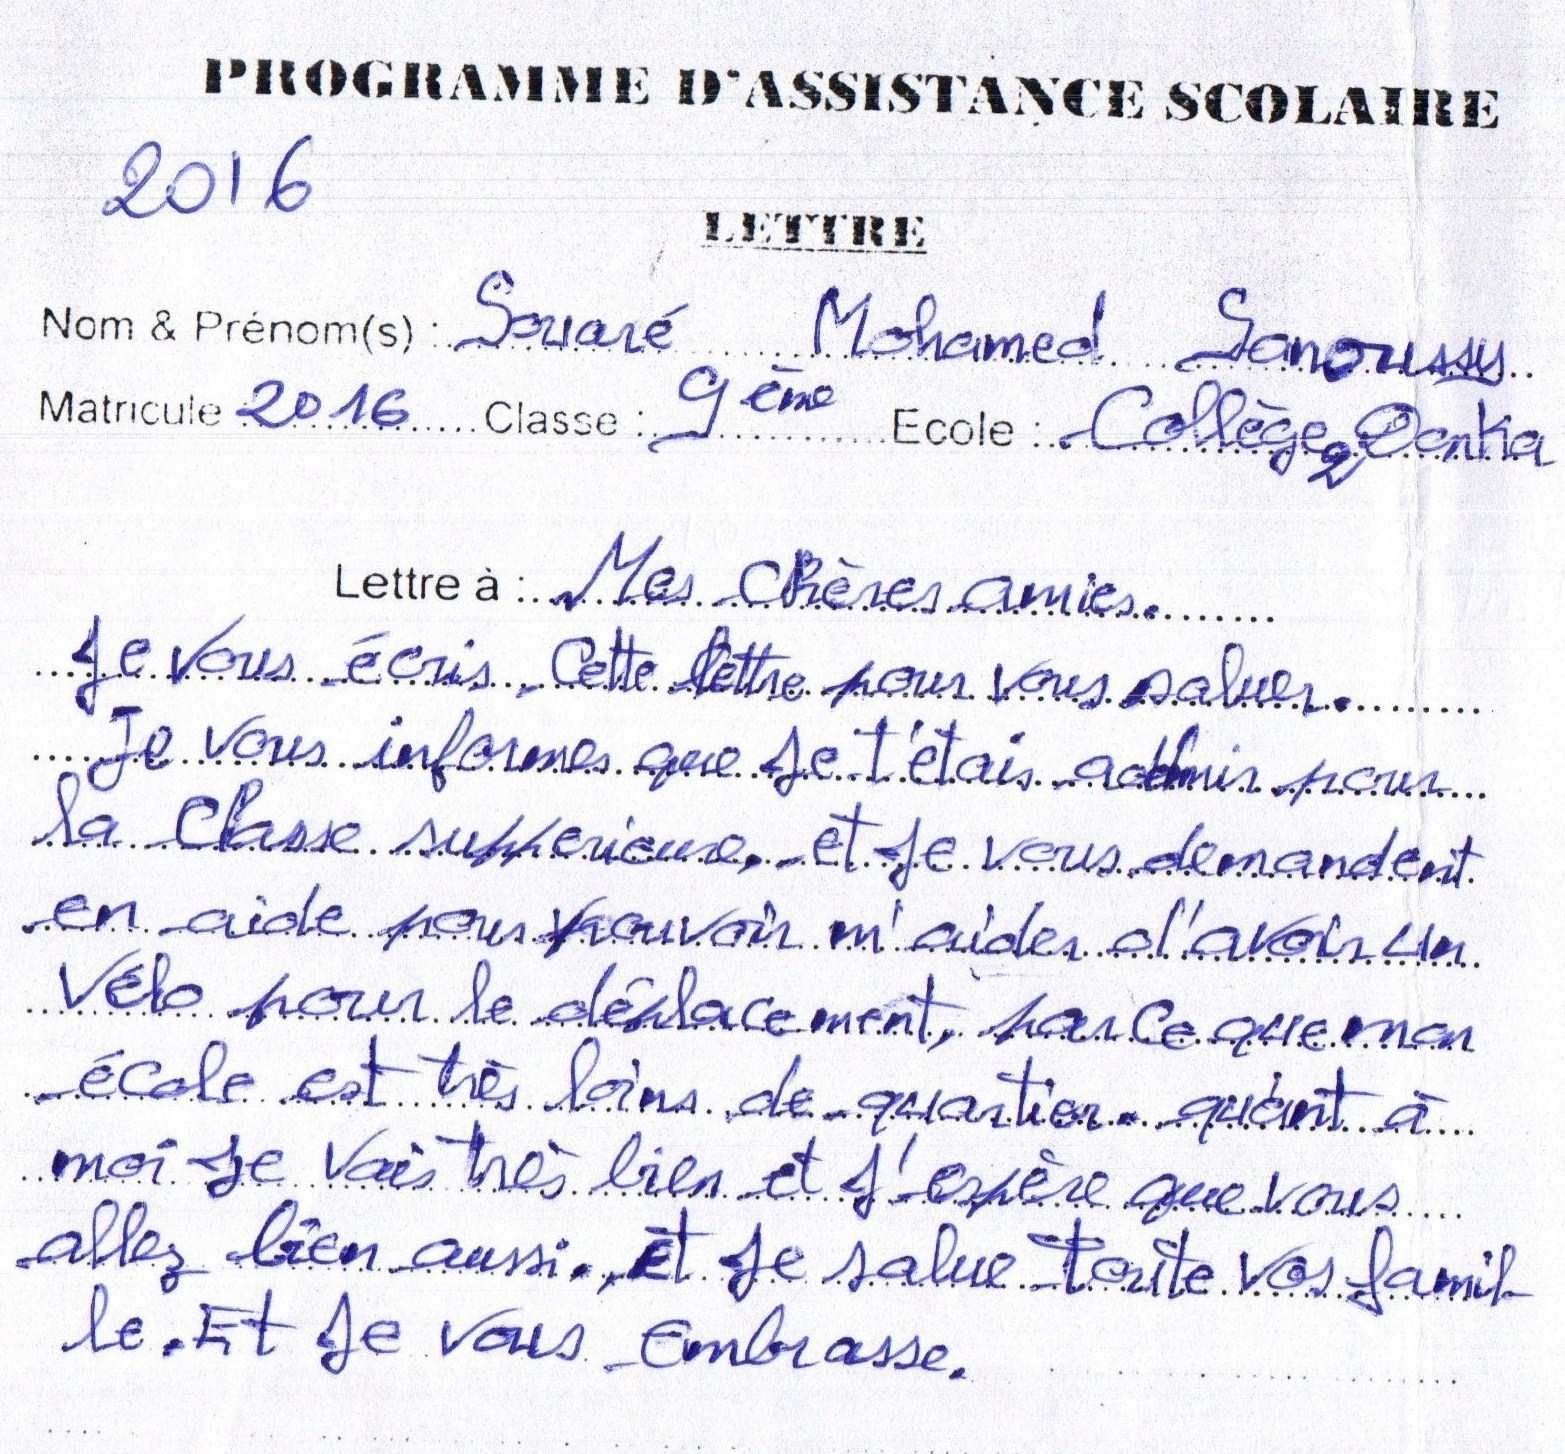 PROGRAMME D'ASSISTANCE SCOLAIRE
2016
LETTRE
Nom & Prénom(s) : Souaré Mohamed Sanoussy
Matricule : 2016 Classe : 9ème Ecole : Collège 2 Donka
Lettre à : Mes chères amies.
Je vous écris cette lettre pour vous saluer.
Je vous informes que je t'étais admir pour
la classe supperieure, et je vous demandent
en aide pour pouvoir m'aider d'avoir un
vélo pour le déplacement, par ce que mon
école est très loins de quartier. quant à
moi je vais très bien et j'espère que vous
allez bien aussi. Et je salue toute vos famil-
le. Et je vous embrasse.